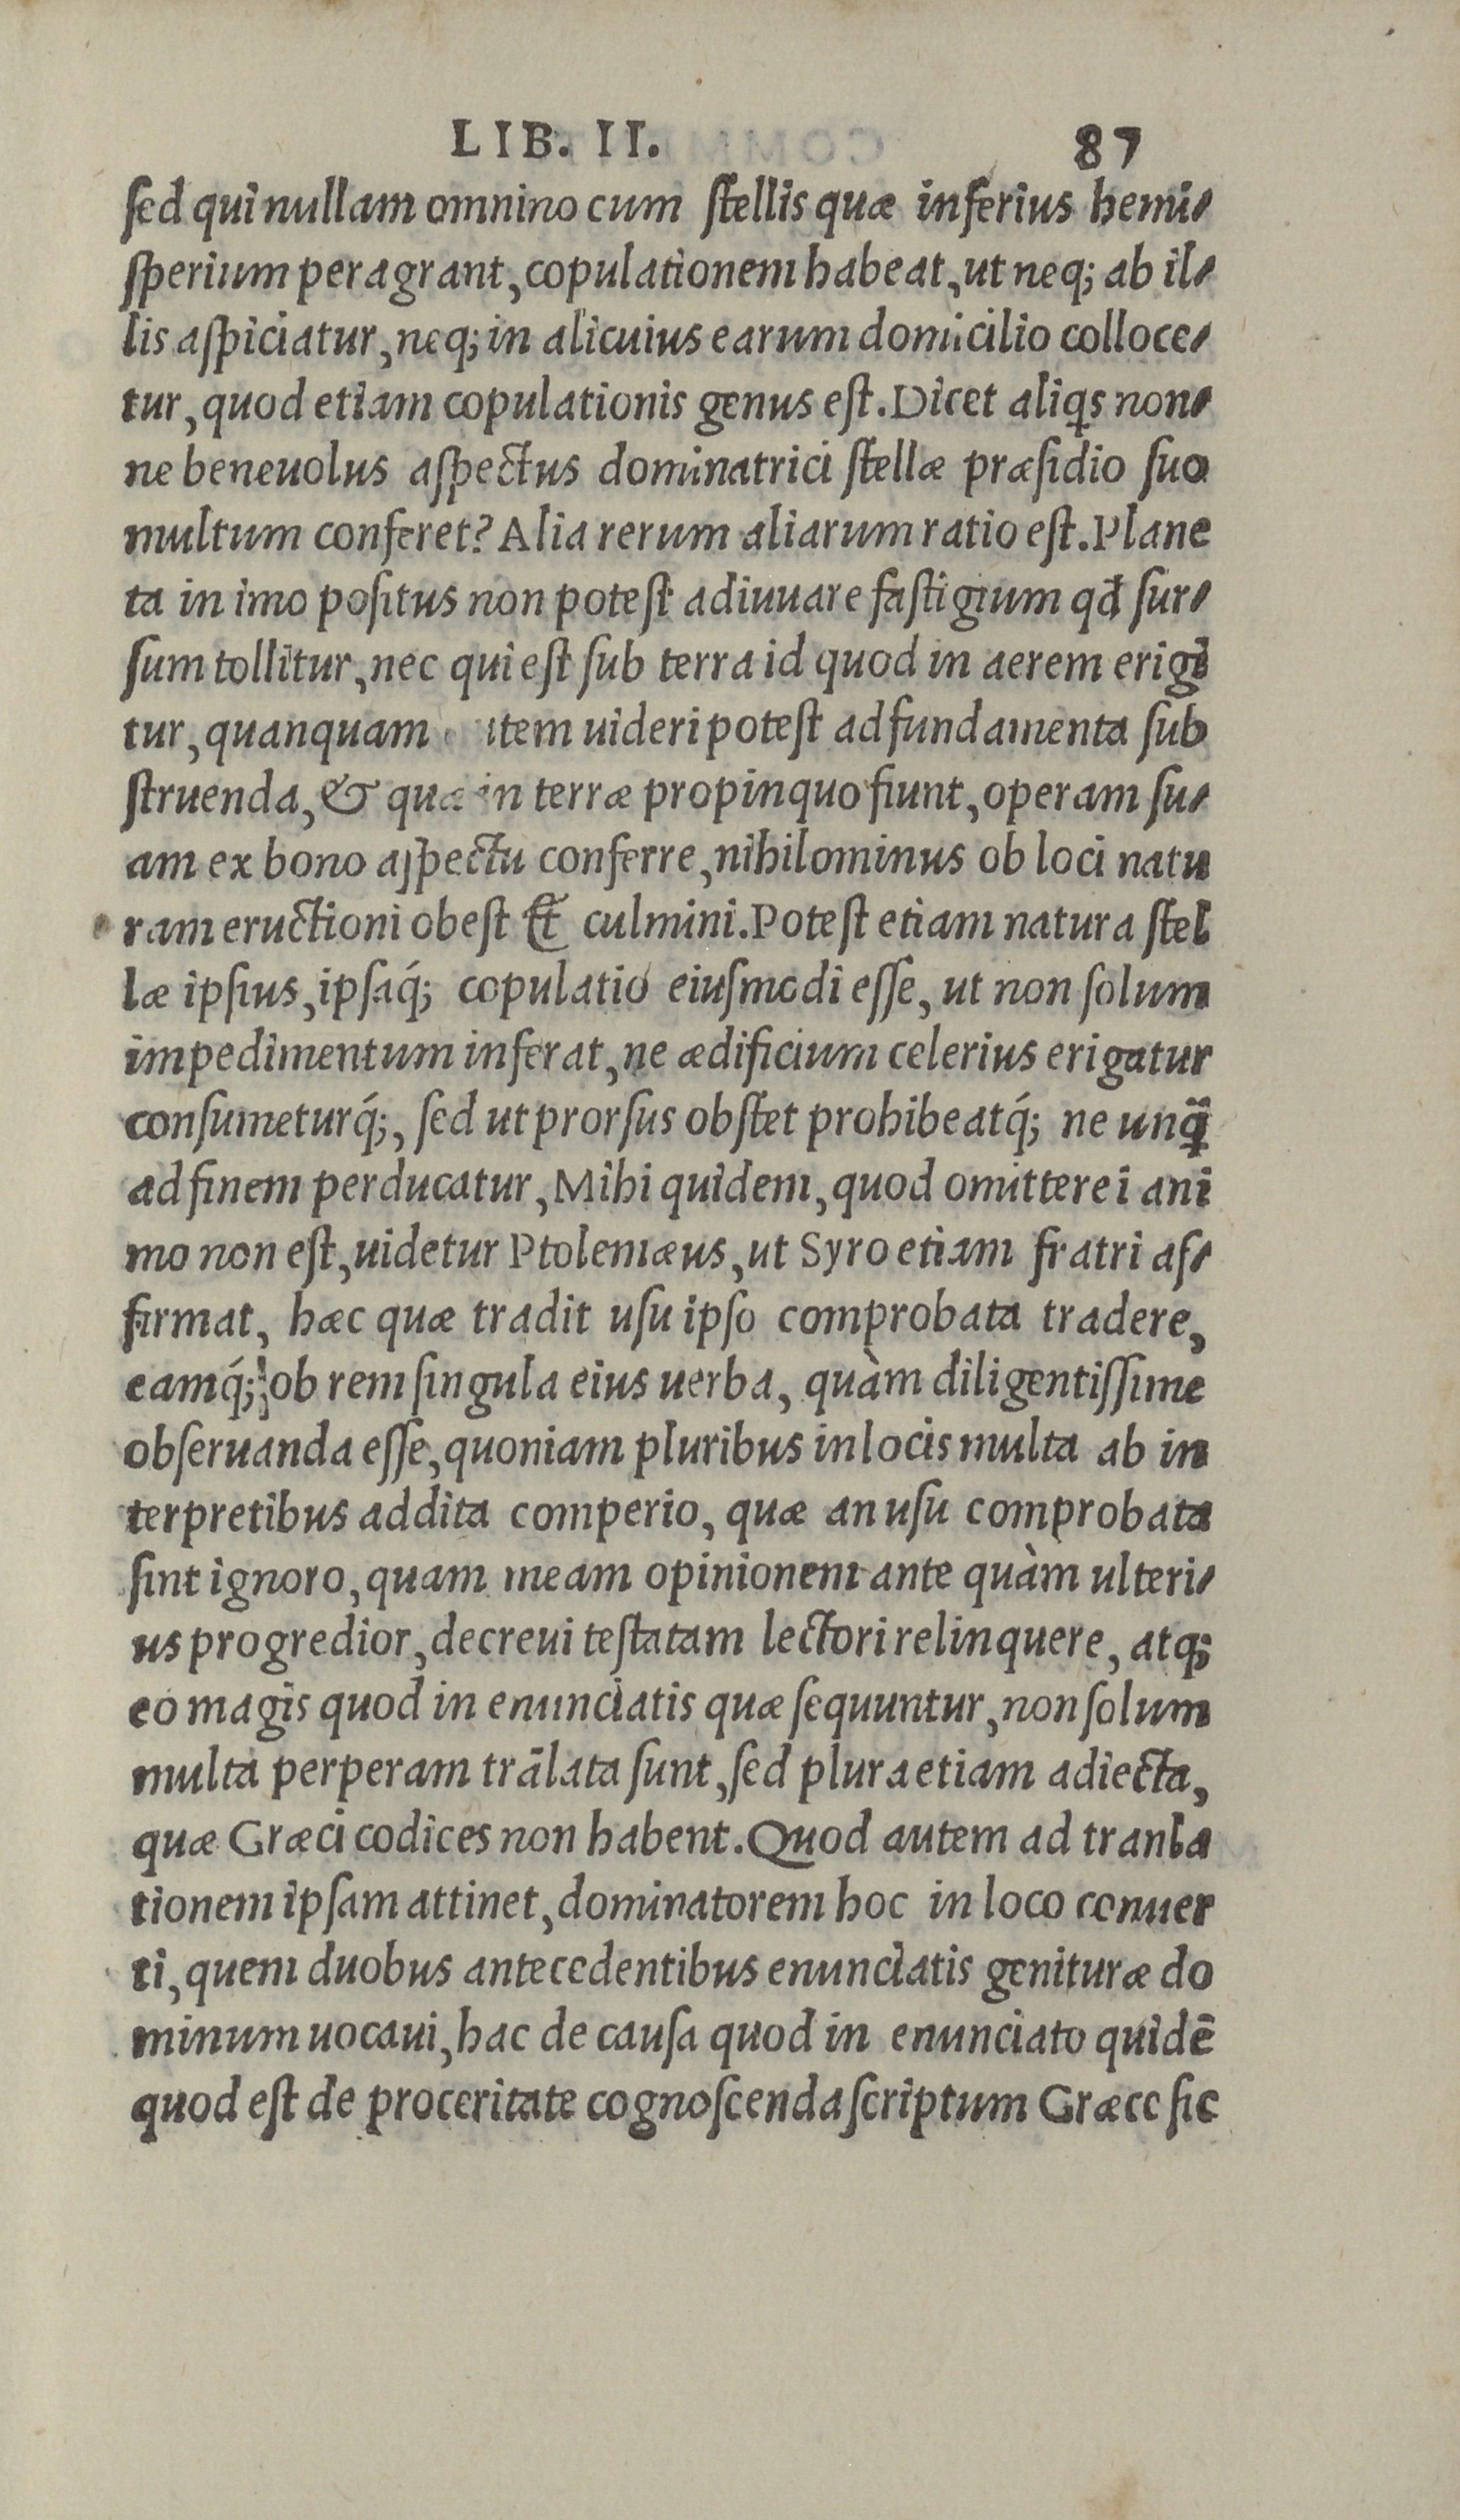 LIB. II. 87
ſed qui nullam omnino cum ſtellis quæ inferius hemi-
ſperium peragrant, copulationem habeat, ut neq; ab il-
lis aſpiciatur, neq; in alicuius earum domicilio colloce-
tur, quod etiam copulationis genus eſt. Dicet aliqs non-
ne beneuolus aſpectus dominatrici ſtellæ præſidio ſuo
multum conferet? Alia rerum aliarum ratio eſt. Plane
ta in imo poſitus non poteſt adiuuare faſtigium qđ ſur-
ſum tollitur, nec qui eſt ſub terra id quod in aerem erigi
tur, quanquam item uideri poteſt ad fundamenta ſub
ſtruenda, & quæ in terræ propinquo fiunt, operam ſu-
am ex bono aſpectu conferre, nihilominus ob loci natu
ram eructioni obeſt & culmini. Poteſt etiam natura ſtel
læ ipſius, ipſaq́; copulatio eiuſmodi eſſe, ut non ſolum
impedimentum inferat, ne ædificium celerius erigatur
conſumeturq́;, ſed ut prorſus obſtet prohibeatq́; ne unq̃
ad finem perducatur, Mihi quidem, quod omittere i ani
mo non eſt, uidetur Ptolemæus, ut Syro etiam fratri aſ-
firmat, hæc quæ tradit uſu ipſo comprobata tradere,
eamq́; ob rem ſingula eius uerba, quàm diligentiſſime
obſeruanda eſſe, quoniam pluribus in locis multa ab in
terpretibus addita comperio, quæ an uſu comprobata
ſint ignoro, quam meam opinionem ante quàm ulteri-
us progredior, decreui teſtatam lectori relinquere, atq;
eo magis quod in enunciatis quæ ſequuntur, non ſolum
multa perperam trãlata ſunt, ſed plura etiam adiecta,
quæ Græci codices non habent. Quod autem ad tranla
tionem ipſam attinet, dominatorem hoc in loco conuer
ti, quem duobus antecedentibus enunciatis genituræ do
minum uocaui, hac de cauſa quod in enunciato quidē
quod eſt de proceritate cognoſcenda ſcriptum Græce ſic